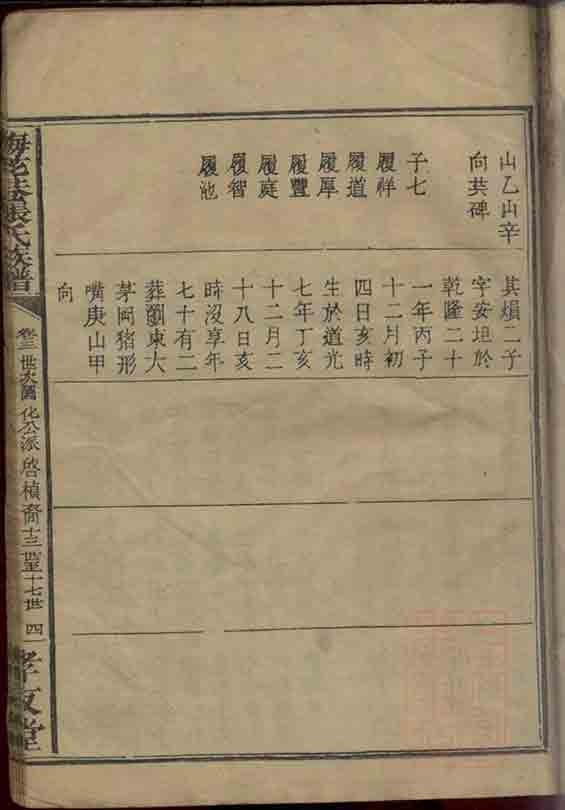 山乙山辛
向共碑
子七
履祥
履道
履厚
履豐
履庭
履智
履池
其熉二子
字安坦於
乾隆二十
一年丙子
十二月初
四日亥時
生於道光
七年丁亥
十二月二
十八日亥
時沒享年
七十有二
葬劉東大
茅岡猪形
嘴庚山甲
向
張氏族譜
卷三 世次圖 化公派啓楨裔十三世至十七世 四
孝友堂